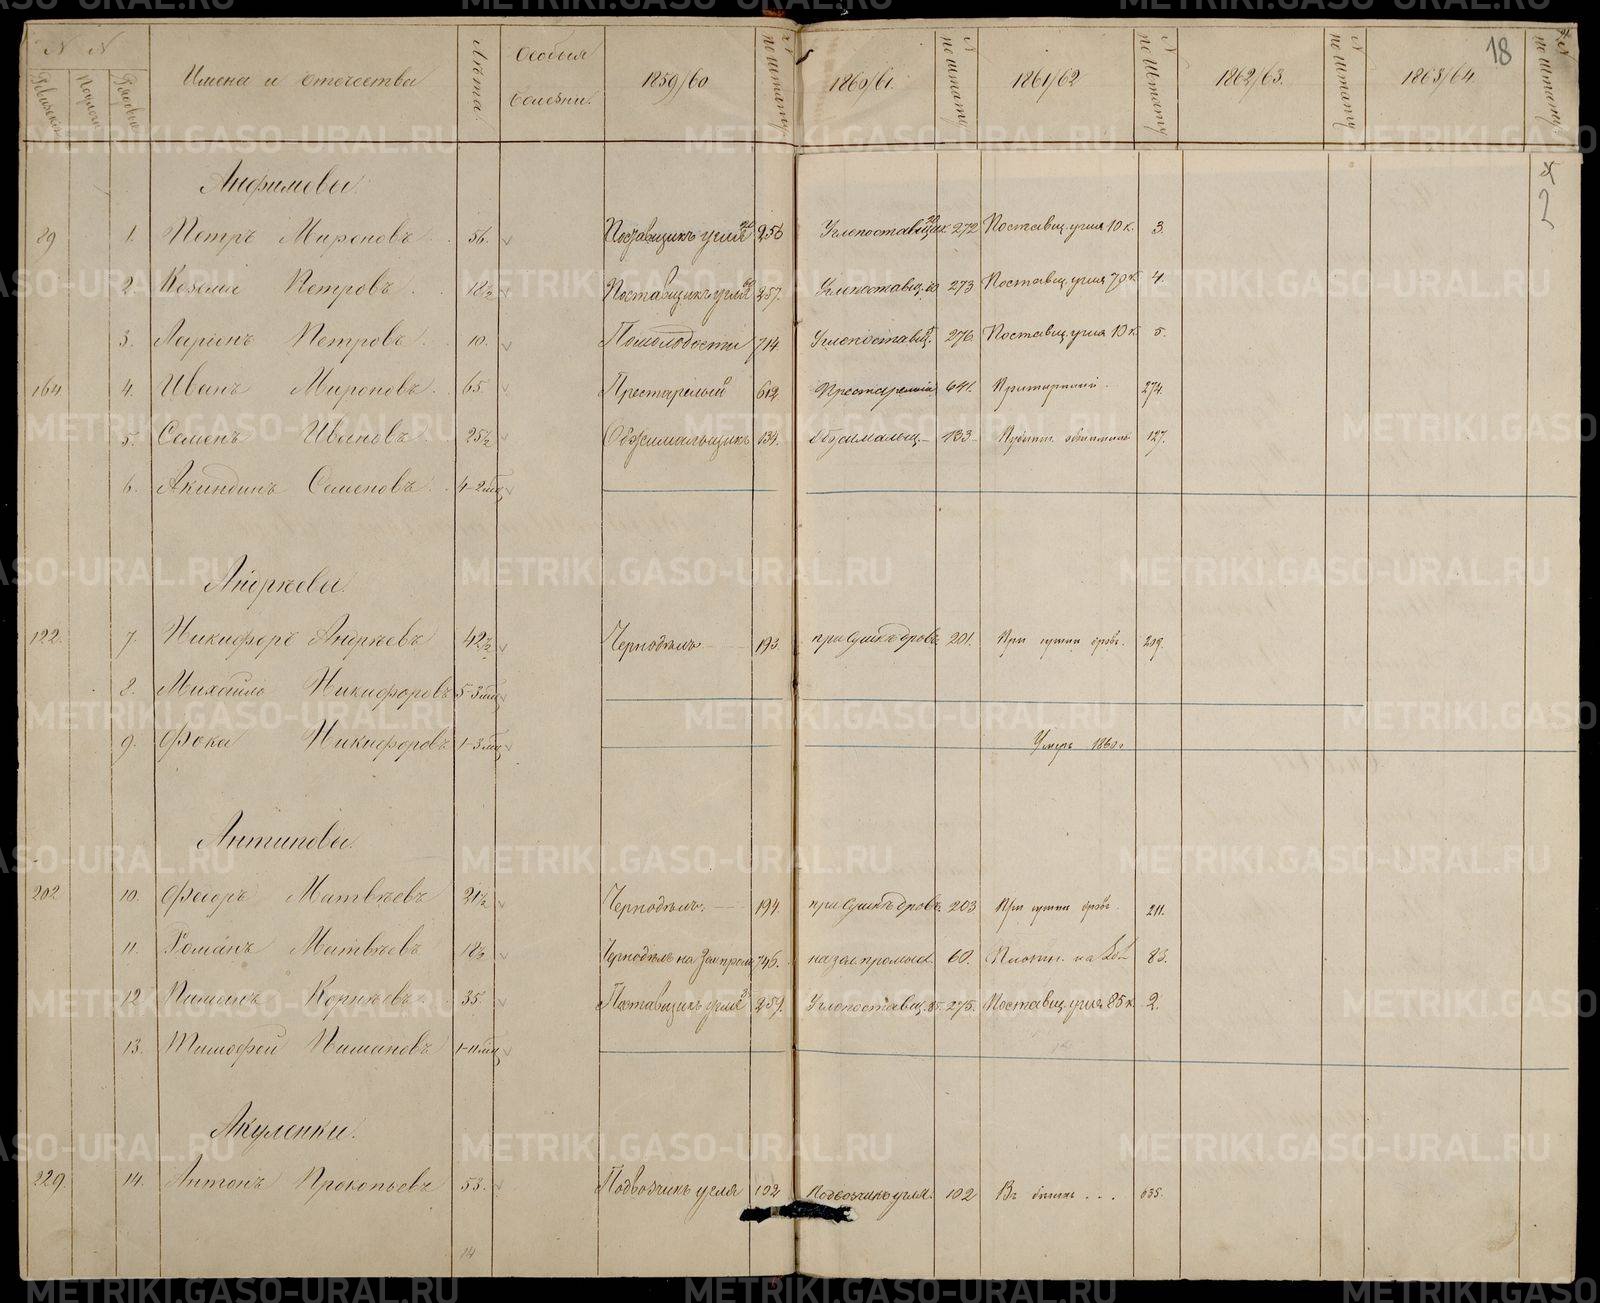 N N Имена и отечества Лѣта. Особыя болезни. 1859/60 N по штату 1860/61. N по штату 1861/62 N по штату 1862/63. N по штату 1863/64. N по штату 18
2
Анфимовы.
29 1. Петръ Мироновъ 56. Поставщикъ угля 256 Углепоставщик 272 Поставщ. угля 10 к. 3.
2. Козьма Петровъ 18½ Поставщикъ угля 257. Углепоставщ. 273 Поставщ. угля 70 к. 4.
3. Ларіонъ Петровъ. 10. По молодости 714. Углепоставщ. 276. Поставщ. угля 10 к. 5.
164 4. Иванъ Мироновъ. 65. Престарелый 612 Престарелый 641. 274.
5. Семенъ Ивановъ. 25½ Обжимальщикъ 134. Обжимальщ. 133 127.
6. Акиндинъ Семеновъ. 4-2 мѣс
Андрѣевы.
122. 7. Никифоръ Андрѣевъ 42½ Чернодѣлъ 193. при сушкѣ дровъ 201. При сушкѣ дровъ. 209.
8. Михайло Никифоровъ 5-3 мѣс
9. Фока Никифоровъ 1-3 мѣс Умеръ 1860 г
Антиповы.
202 10. Федоръ Матвѣевъ 21½ Чернодѣлъ. 194. при сушкѣ дровъ. 203 При сушкѣ дровъ. 211.
11. Романъ Матвѣевъ 18½ Чернодѣлъ на Зол. промы 745. на зол. промыс. 60. 83.
12 Пиманъ Корнѣевъ. 35. Поставщикъ угля 259. Углепоставщ. 275. Поставщ. угля 85 к. 2.
13. Тимофей Пимановъ 1-11 мѣс
Акуленки.
229. 14. Антонъ Прокопьевъ 53. Подвозчикъ угля 102 Подвозчикъ угля. 102 635.
14
METRIKI.GASO-URAL.RU